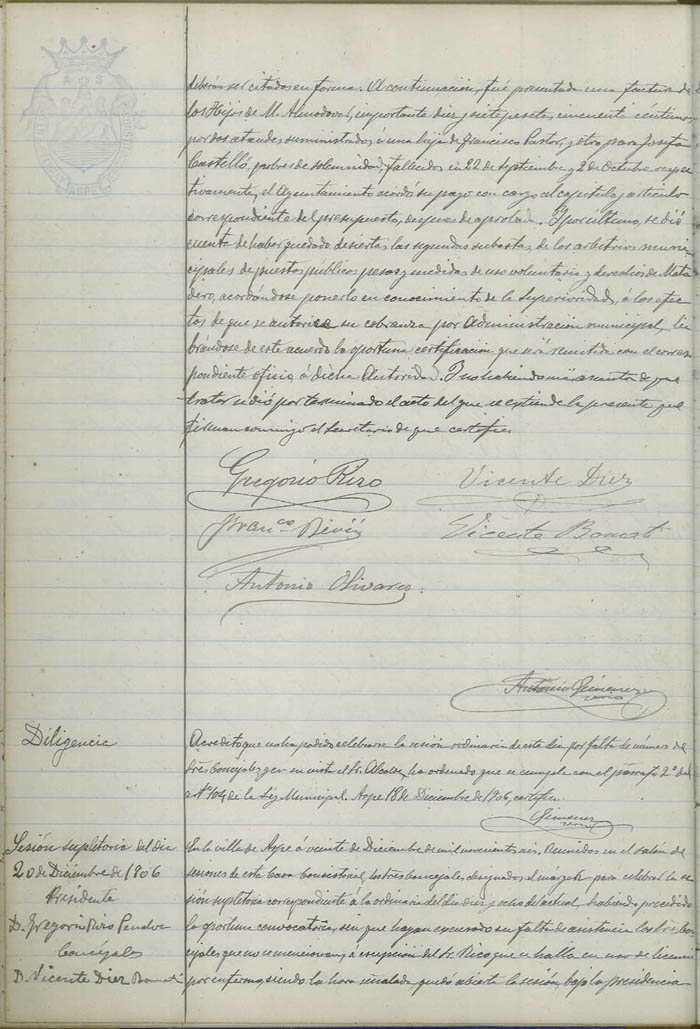 deberán ser citados en forma. A continuación, fué presentada una factura de
los Hijos de M. Almodovar, importante diez y siete pesetas, cincuenta céntimos
por dos ataudes suministrados á una hija de Francisco Pastor, y otro para Josefa
Castelló, pobres de solemnidad, fallecidos en 22 de Septiembre y 2 de Octubre respec
tivamente, el Ayuntamiento acordó su pago con cargo al capitulo y articulo
correspondiente del presupuesto, despues de aprobada. Y por último, se dió
cuenta de haber quedado desiertas las segundas subastas, de los arbitrios muni-
cipales de puestos públicos pesas y medidas de uso voluntario y derechos de Mata
dero, acordándose ponerlo en conocimiento de la Superioridad, á los efec
tos de que se autorice su cobranza por Administración municipal, li
brándose de este acuerdo la oportuna certificación que será remitida con el corres
pondiente oficio á dicha Autoridad. Y no habiendo mas asuntos de que
tratar se dió por terminado el acto del que se extiende la presente que
firman conmigo el Secretario de que certifico
Gregorio Rizo Vicente Diez
Franco
Vicente Bonmati
Antonio Olivares
Antonio Gimenez
Diligencia
Acredito que no ha podido celebrarse la sesión ordinaria de este dia por falta de número de
tres concejales y en su vista el Sr. Alcalde, ha ordenado que se cumpla con el párrafo 2º del
artº 104 de la Ley Municipal. Aspe 18 de Diciembre de 1906, certifico
Gimenez
Sesión supletoria del dia
20 de Diciembre de 1906
Presidente
D. Gregorio Rizo
Concejales
D. Vicente Diez Bonmati
En la villa de Aspe á veinte de Diciembre de mil novecientos seis. Reunidos en el salón de
sesiones de esta Casa Consistorial, los tres concejales, designados al márgen para celebrar la se
sión supletoria correspondiente á la ordinaria del dia diez y ocho del actual, habiendo precedido
la oportuna convocatoria, sin que hayan excusado su falta de asistencia los Sres. Con
cejales que no se mencionan, á excepción del Sr. Rico que se halla en uso de licencia
por enfermo, siendo la hora señalada, quedó abierta la sesión, bajo la presidencia